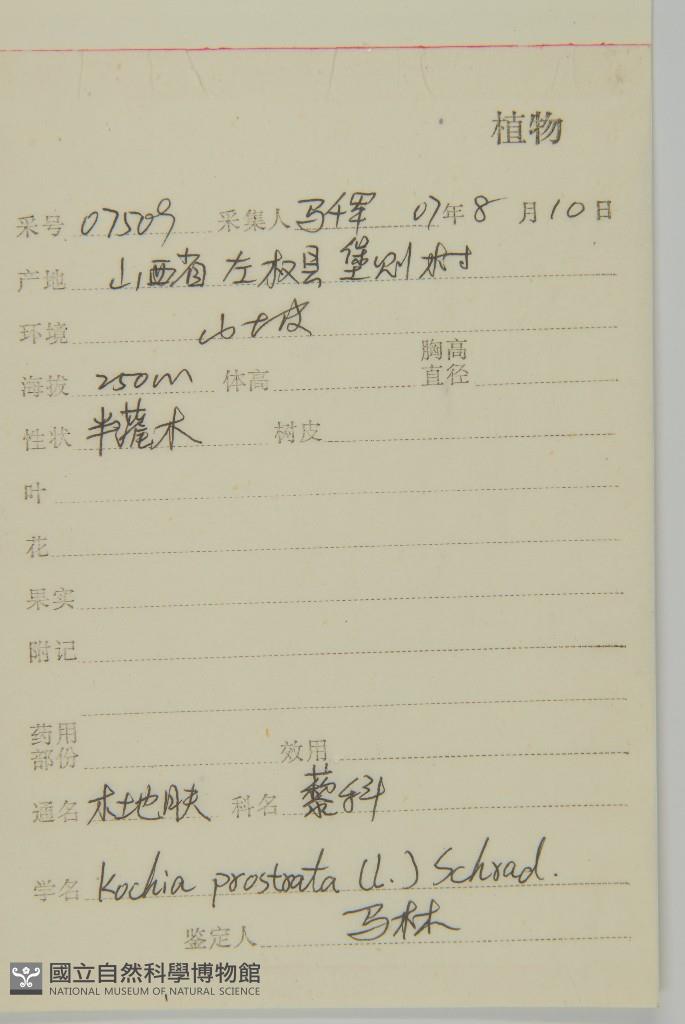 植物
采号 07509 采集人 马 07年8月10日
产地 山西省左权县堡则村
环境 山坡
海拔 250m 体高 胸高直径
性状 半灌木 树皮
叶
花
果实
附记
药用部份 效用
通名 木地肤 科名 藜科
学名 Kochia prostrata (L.) Schrad.
鉴定人 马林
國立自然科學博物館
NATIONAL MUSEUM OF NATURAL SCIENCE